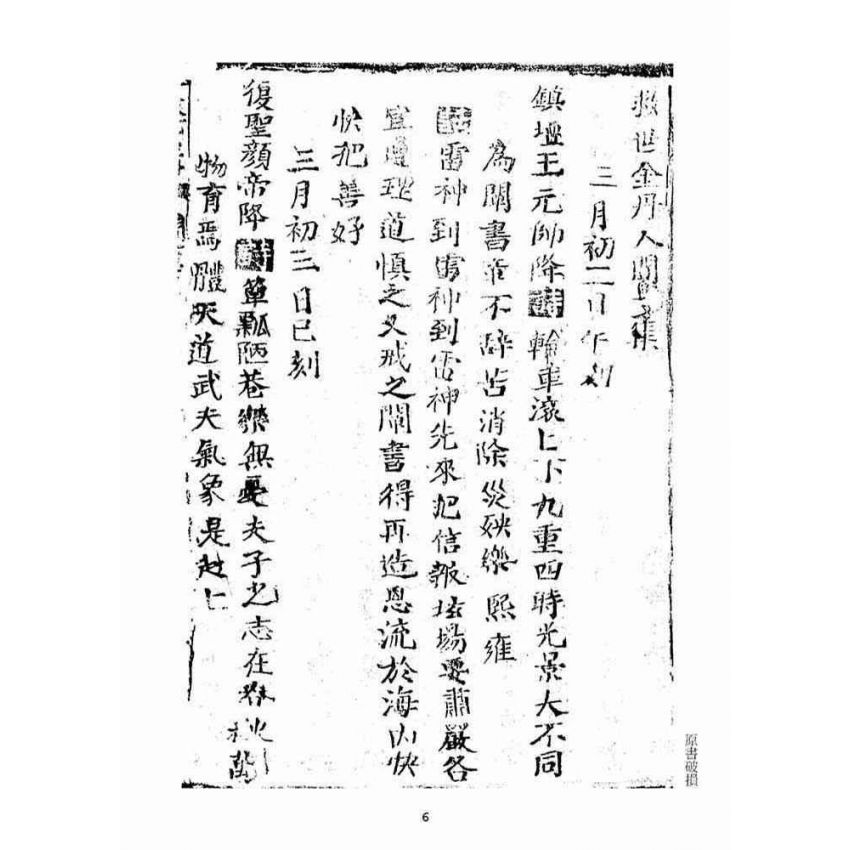 救世金丹人間集
三月初二日午刻
鎮壇王元帥降 輪車滾上下九重四時光景大不同
為闡書章不辭苦消除災殃樂熙雍
雷神到雷神到雷神先來把信報壇場要肅嚴各
宜遵理道慎之又戒之闡書得再造恩流於海內快
快把善好
三月初三日巳刻
復聖顏帝降 簞瓢陋巷樂無憂夫子之志在春秋萬
物育焉體天道武夫氣象是赳
原書破損
6